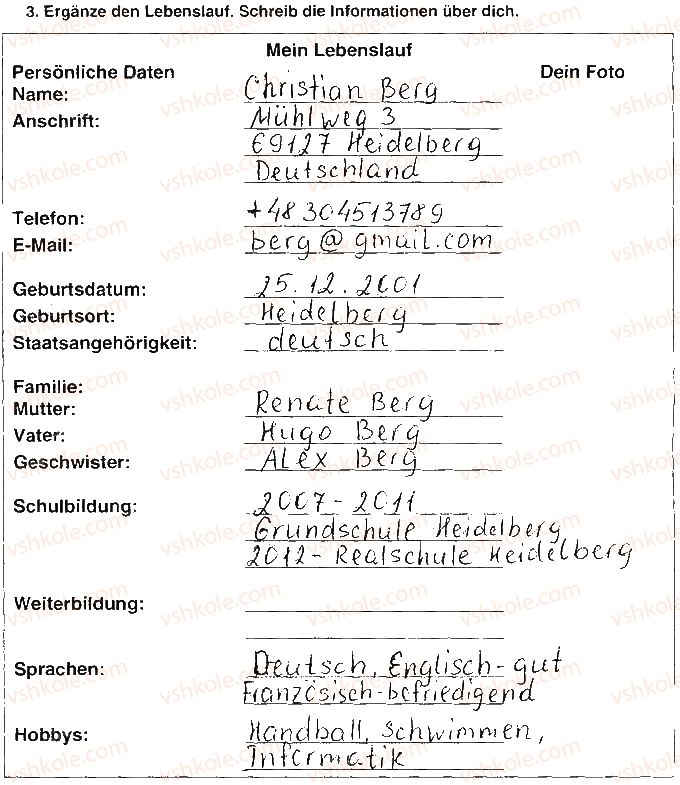 3. Ergänze den Lebenslauf. Schreib die Informationen über dich.
Mein Lebenslauf
Persönliche Daten Dein Foto
Name: Christian Berg
Anschrift: Mühlweg 3
69127 Heidelberg
Deutschland
Telefon: +48 304513789
E-Mail: berg@gmail.com
Geburtsdatum: 25.12.2001
Geburtsort: Heidelberg
Staatsangehörigkeit: deutsch
Familie:
Mutter: Renate Berg
Vater: Hugo Berg
Geschwister: Alex Berg
Schulbildung: 2007-2011
Grundschule Heidelberg
2012- Realschule Heidelberg
Weiterbildung:
Sprachen: Deutsch, Englisch-gut
Französisch-befriedigend
Hobbys: Handball, schwimmen,
Informatik
vshkole.com